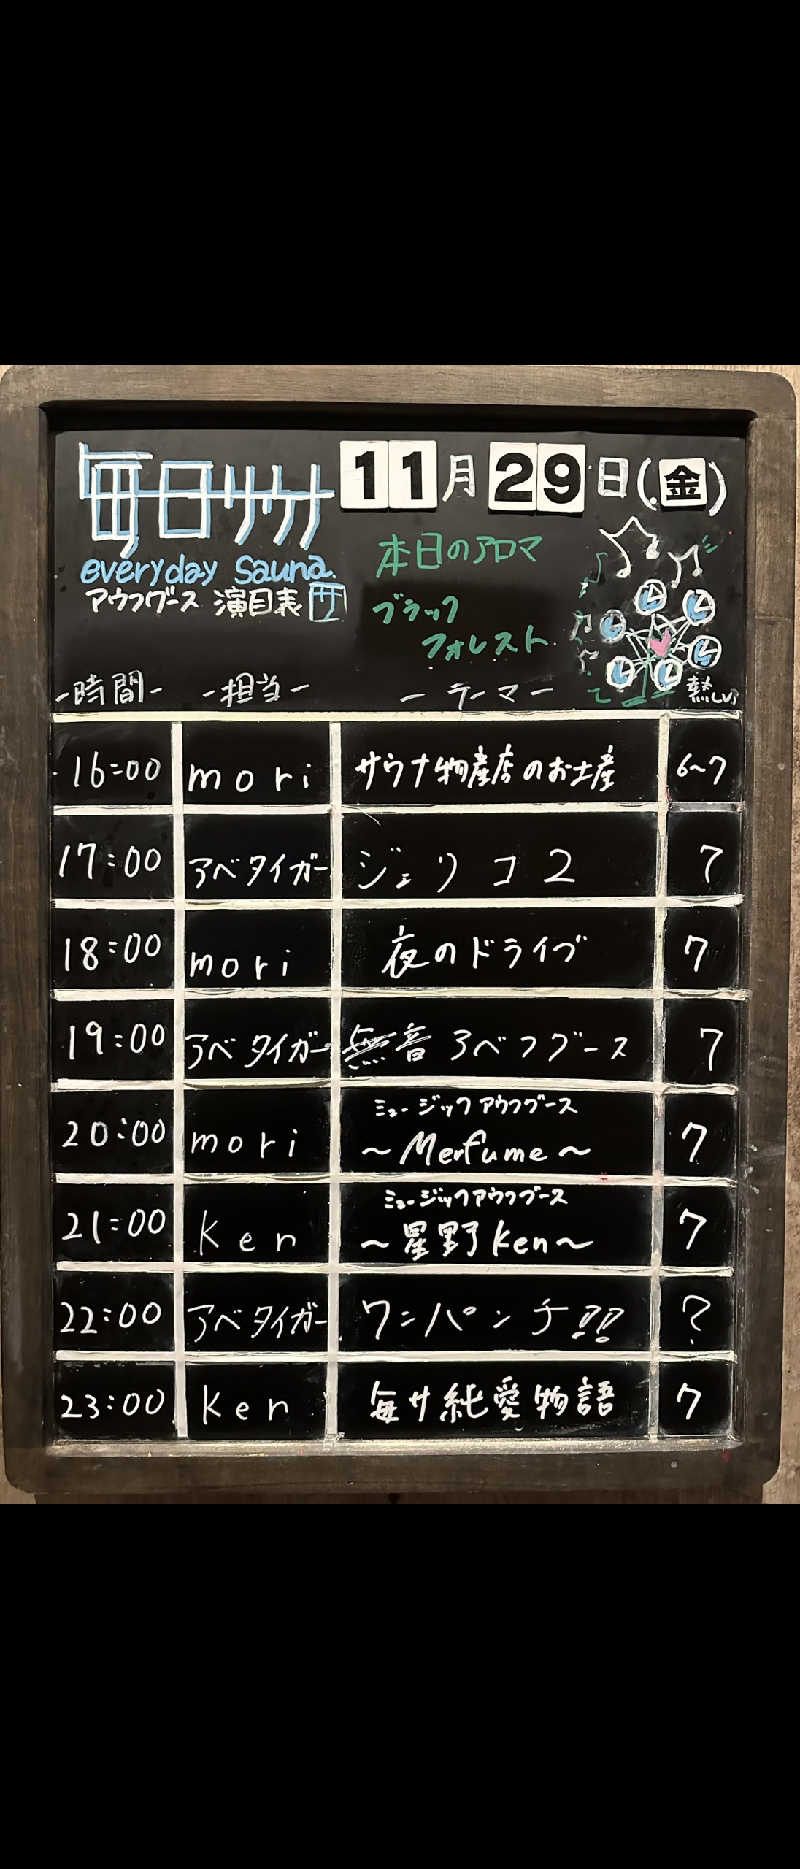 毎日サウナ 11月29日(金)
everyday sauna
アウフグース 演目表 サ
本日のアロマ
ブラック
フォレスト
-時間- -担当- -テーマ- 熱レベル
16:00 mori サウナ物産店のお土産 6~7
17:00 アベタイガー ジェリコ2 7
18:00 mori 夜のドライブ 7
19:00 アベタイガー 無音アベフグース 7
20:00 mori ミュージックアウフグース
~Merfume~ 7
21:00 Ken ミュージックアウフグース
~星野Ken~ 7
22:00 アベタイガー ワンパンチ!!!! ?
23:00 Ken 毎サ純愛物語 7